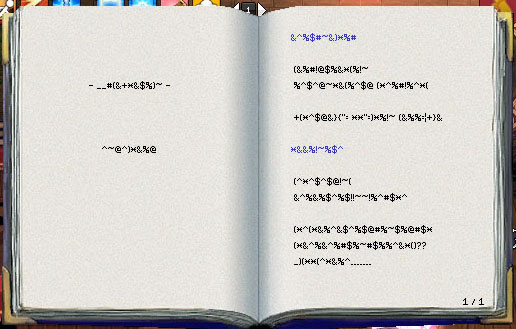 - __#(&+×&$%)~ -
^~@^)×&%@
&^%$#~&)×%#
(&%#!@$%&×(%!~
%^$^@~×&(%^$@ (×^%#!%^×(
+(×^$@&}{": ××":)×%!~ (&%%:|+}&
×&&%!~%$^
(^×^$^$@!~(
&^%&%$^%$!!~~!%^#$×^
(×^(×&%^&$^%$@#%~$%@#$×
(×&^%&^%#$%~#$%%^&×()??
_)(××(^×&%^______
1 / 1